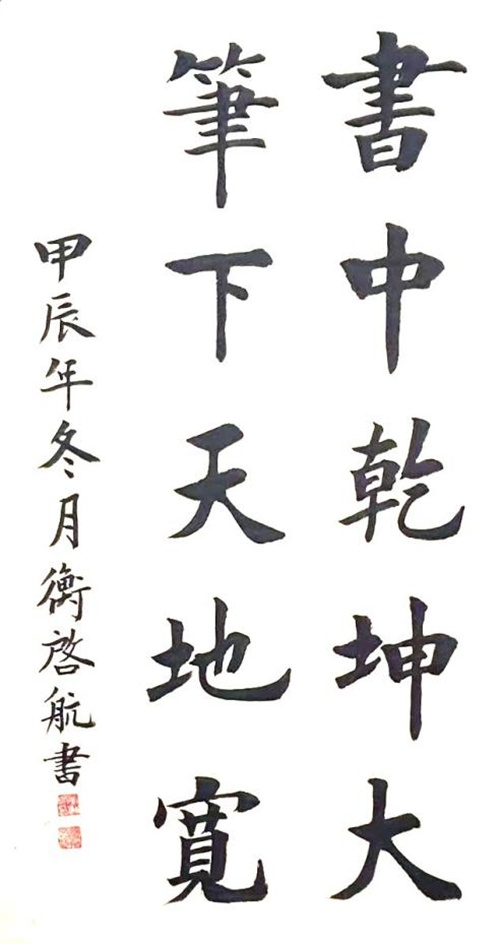 書中乾坤大
筆下天地寬
甲辰年冬月衡啓航書